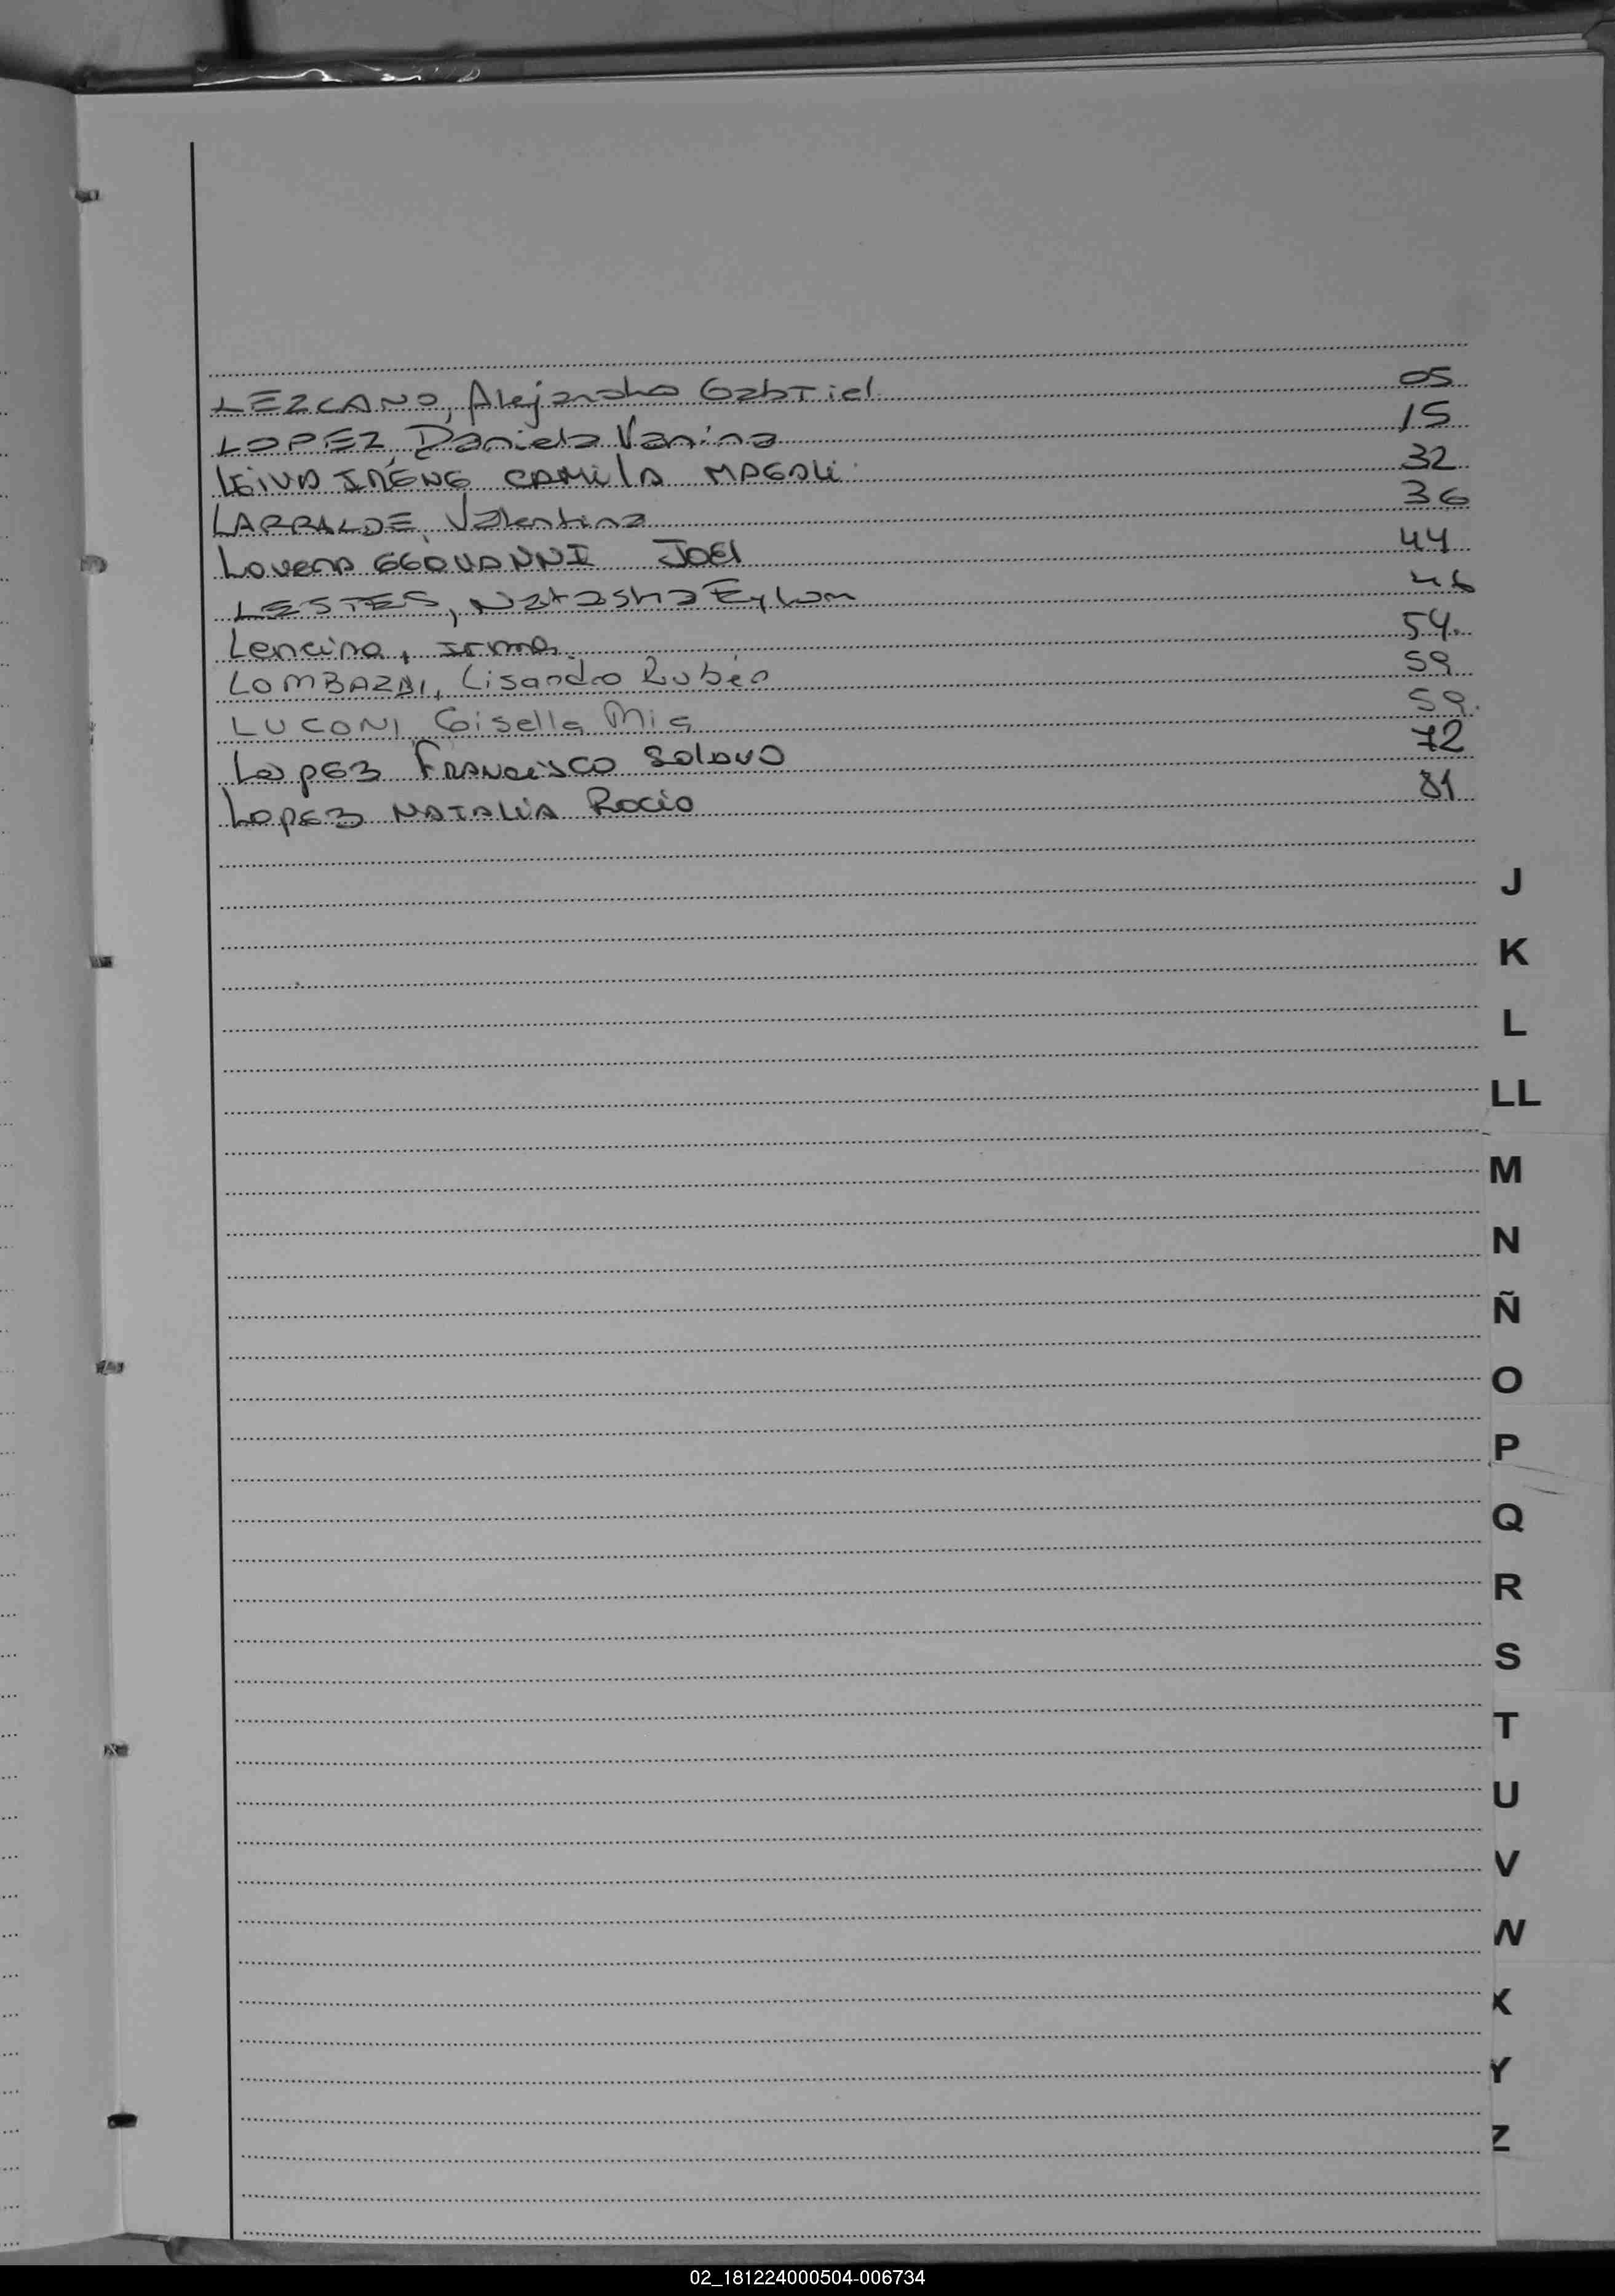 LEZCANO, Alejandro Gabriel 05
LOPEZ, Daniela Vanina 15
LEIVA IRENE CAMILA MAGALI 32
LARRALDE, Valentina 36
Lovera GGOVANNI JOEl 44
LESTES, Natasha 46
Lencina, Irma. 54.
LOMBARDI, Lisandro Rubén 59
LUCONI, Gisella Mia 59.
Lopez FRANCISCO 72
Lopez NATALIA Rocio 81
J
K
L
LL
M
N
Ñ
O
P
Q
R
S
T
U
V
W
X
Y
Z
02_181224000504-006734